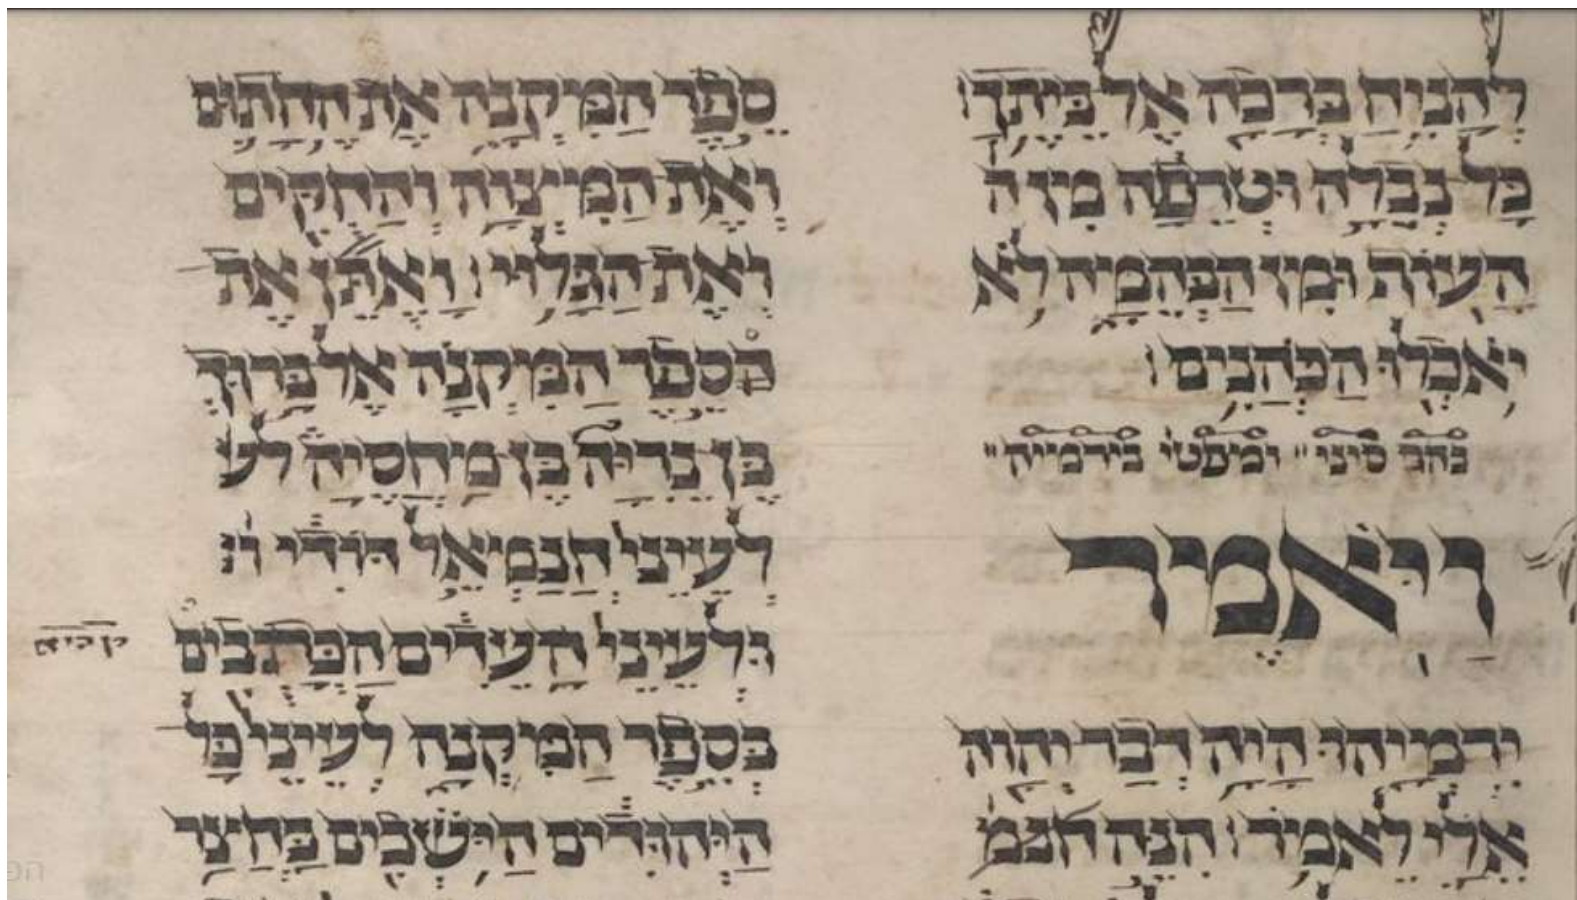 לְהָנִיחַ בְּרָכָה אֶל בֵּיתֶךָ׃
כָּל נְבֵלָה וּטְרֵפָה מִן הָ
הָעוֹף וּמִן הַבְּהֵמָה לֹא
יֹאכְלוּ הַכֹּהֲנִים׃
בהר סיני׳׳ ומפטי׳ בירמיה׳׳
וַיֹּאמֶר
יִרְמְיָהוּ הָיָה דְּבַר יְהוָה
אֵלַי לֵאמֹר׃ הִנֵּה חנמ
סֵפֶר הַמִּקְנָה אֶת הֶחָתוּם
וְאֶת הַמִּצְוָה וְהַחֻקִּים
וְאֶת הַגָּלוּי׃ וָאֶתֵּן אֶת
הַסֵּפֶר הַמִּקְנָה אֶל בָּרוּךְ
בֶּן נֵרִיָּה בֶּן מַחְסֵיָה לע
לְעֵינֵי חֲנַמְאֵל דֹּדִי ו
וּלְעֵינֵי הָעֵדִים הַכֹּתְבִים
בְּסֵפֶר הַמִּקְנָה לְעֵינֵי כָּל
הַיְּהוּדִים הַיֹּשְׁבִים בַּחֲצַר